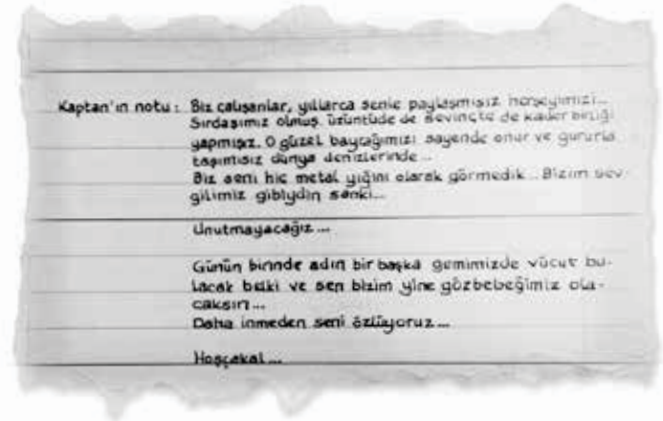 Kaptan'ın notu: Biz çalışanlar, yıllarca senle paylaşmışız herşeyimizi...
Sırdaşımız olmuş, üzüntüde de sevinçte de kader birliği
yapmışız. O güzel bayrağımızı sayende onur ve gururla
taşımışız dünya denizlerinde...
Biz seni hiç metal yığını olarak görmedik... Bizim sev-
gilimiz gibiydin sanki...
Unutmayacağız...
Günün birinde adın bir başka gemimizde vücut bu-
lacak belki ve sen bizim yine gözbebeğimiz ola-
caksın...
Daha inmeden seni özlüyoruz...
Hoşçakal...